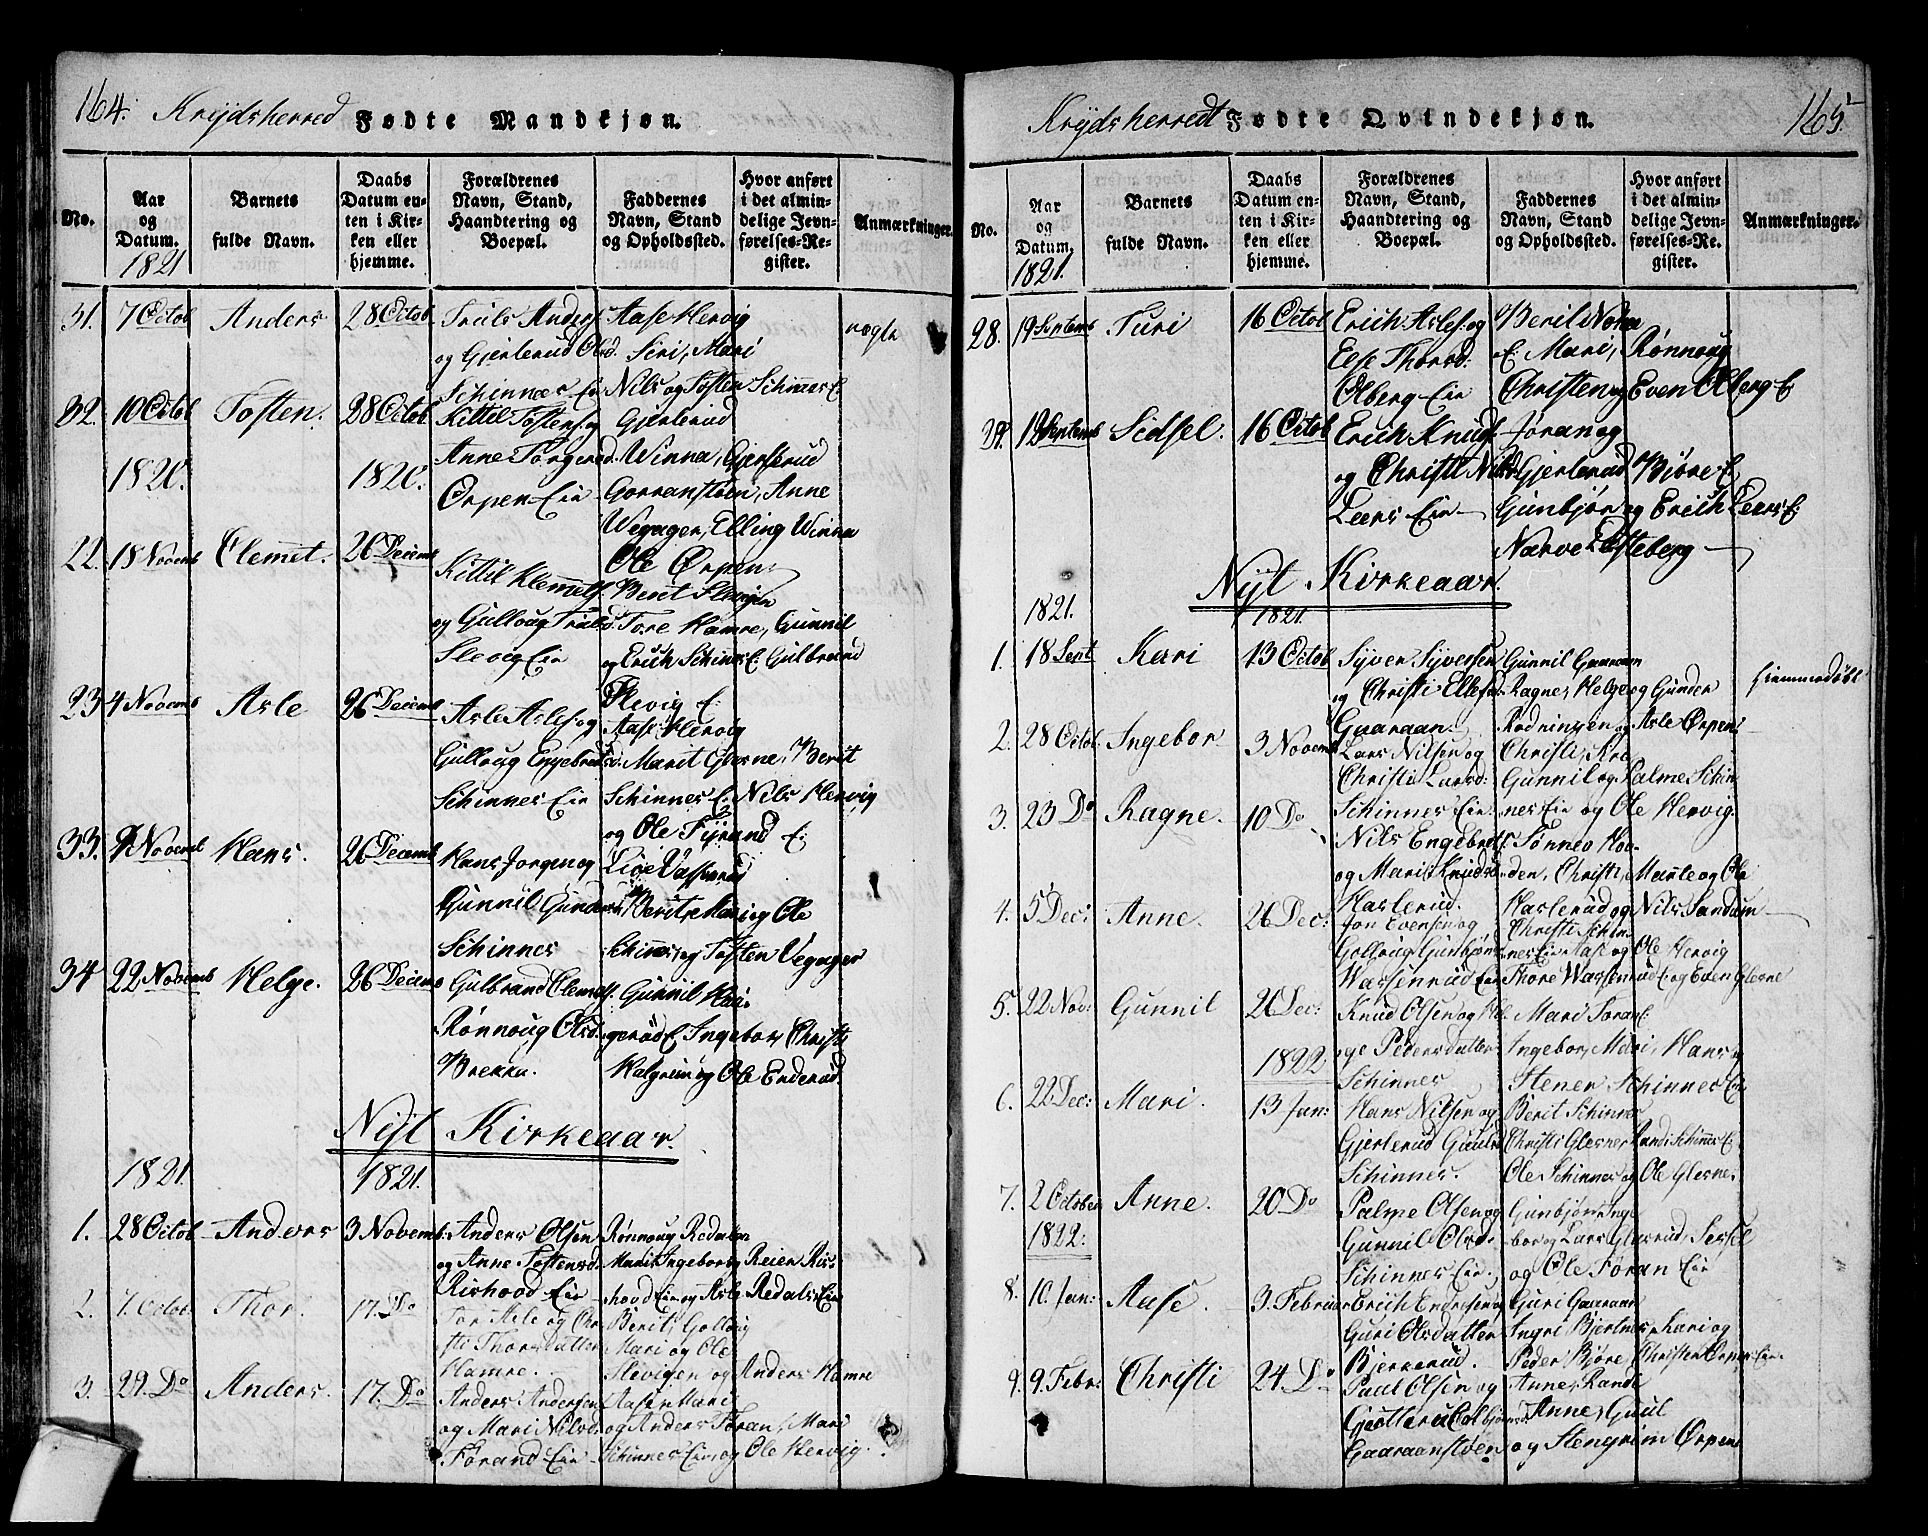 164. Krÿdsherred Fødte Mandkjøn.
No.
Aar og Datum.
Barnets fulde Navn.
Daabs Datum enten i Kirken eller hjemme.
Forældrenes Navn, Stand, Haandtering og Boepæl.
Faddernes Navn, Stand og Opholdssted.
Hvor anført i det almindelige Jevnførelses-Register.
Anmærkninger.
1821
31. 7 Octob Anders 28 Octob Truls Anders
og Gjerterud Olsd.
Schinnes Eie
Aase Hervig
Siri, Mari
Nils og Tosten Schinnes E.
32. 10 Octob Tosten. 28 Octob Kittil Tostens. og
Anne Torgersd.
Ørpen Eie
Gjerterud
Winna, Gjerterud
Gorranstøen, Anne
Wegager, Elling Winna
1820. 1820.
22. 18 Novemb Clemet. 26 Decemb Kittil Klemets.
og Gulloug Trulsd.
Slevig Eie
Ole Ørpen
Berit Slevigen
Tore Hamre, Gunnil
og Erich Schinnes E. Gulbrand
Slevig E.
23 4 Novemb Asle 26 Decemb Asle Asles. og
Gulloug Engebretsd.
Schinnes Eie
Aase Hervig
Marit Glesne, Berit
Schinnes E. Nils Hervig
og Ole Fÿrand E.
33. Novemb Hans. 26 Decemb Hans Jorgen og
Gunnil Gunders
Schinnes
Berit, Mari og Ole
Schinnes og Tosten Vegager
34 22 Novemb Helge. 26 Decemb Gulbrand Clemets.
Rønnoug Olsd.
Brekke.
Gunnil Hal-
gerud E. Ingebor, Christi
Halgrim og Ole Enderud.
Nÿt Kirkeaar.
1821. 1821.
1. 28 Octob Anders 3 Novemb: Anders Olsen
og Anne Tostensd.
Rishovd Eie
Rønnoug Redalen
Marit Ingebor og Reier Ris-
hovd Eie og Asle Redals Eie
2. 7. Octob Thor. 17. Do Tor Asle og Chri
sti Thorsdatter
Hamre.
Berit, Golloug
Mari og Ole
Slevigen og Anders Hamre
3. 29. Do Anders. 17. Do Anders Andersen
og Mari Nilsd.
Forand Eie
Aase, Mari
og Anders Foran, Mari
Schinnes Eie, og Ole Hervig.
Krÿdsherredt Fødte Qvindekjøn. 165
No.
Aar og Datum.
Barnets fulde Navn.
Daabs Datum enten i Kirken eller hjemme.
Forældrenes Navn, Stand, Haandtering og Boepæl.
Faddernes Navn, Stand og Opholdssted.
Hvor anført i det almindelige Jevnførelses-Register.
Anmærkninger.
1821.
28. 19 Septemb Turi 16 Octob Erich Asles. og
Else Thorsd.
Olberg Eie
Beril
E. Mari, Rønnoug
Christen og Even Olberg E.
29. 12 Septemb Sidsel. 16 Octob Erich Knuds.
og Christi Nilsd.
Leers Eie
Joran og
Gjerterud Bjøre E.
Gunbjør og Erich Leers E.
Narve Tosteberg
Nÿt Kirkeaar.
1821. 1821.
1. 18 Sept Kari 13 Octob Syver Syversen
og Christi Ellefsd.
Gaaraan.
Gunnil Gaaraan
Ragne, Helge og Gunder
Rodningen og Asle Ørpen
hjemmedøbt
2. 28 Octob. Ingebor 3 Novemb Lars Nilsen og
Christi Larsd.
Schinnes Eie.
Christi,
Gunnil og Palme Schin
nes Eie og Ole Hervig.
3. 23 Do Ragne. 10 Do Nils Engebrets.
og Mari Knudsd.
Haslerud.
Tønnes Hov-
den, Christi, Marte og Ole
Haslerud og Nils Sandum
4. 5 Dec: Anne. 26 Dec: Jon Eversen og
Golloug Gunbjørns
Wassenrud Eie
Christi Schin-
nes Eie Aase og Ole Hervig
Thore Wassenrud E. og Even Glesne
5. 22 Nov: Gunnil 26 Dec: Knud Olsen og Hel
ge Pedersdatter
Schinnes
Mari Foran E.
Ingebor, Mari, Hans og
Stener Schinnes Eie
1822.
6. 22 Dec: Mari. 13 Jan: Hans Nilsen og
Gjerterud Gulds
Schinnes.
Berit Schinnes
Christi Glesne Randi Schinnes E.
Ole Schinnes og Ole Glesne.
7. 2 October Anne. 20 Do Palme Olsen og
Gunnil Olsd.
Schinnes Eie.
Gunbjør Inge
bor og Lars Glesrud, Sersel
og Ole Foran Eie
1822.
8. 10. Jan: Aase. 3. Februar Erich Endresen og
Guri Olsdatter
Bjerkerud.
Guri Gaaraan
Ingri Bjertnes, Kari og
Peder Bjøre, Christen Ørpen Eie.
9. 9. Febr: Christi 24 Do Paul Olsen og
Gaaraanstøen
Anne, Randi
Anne, Guul
og Stengrim Ørpen